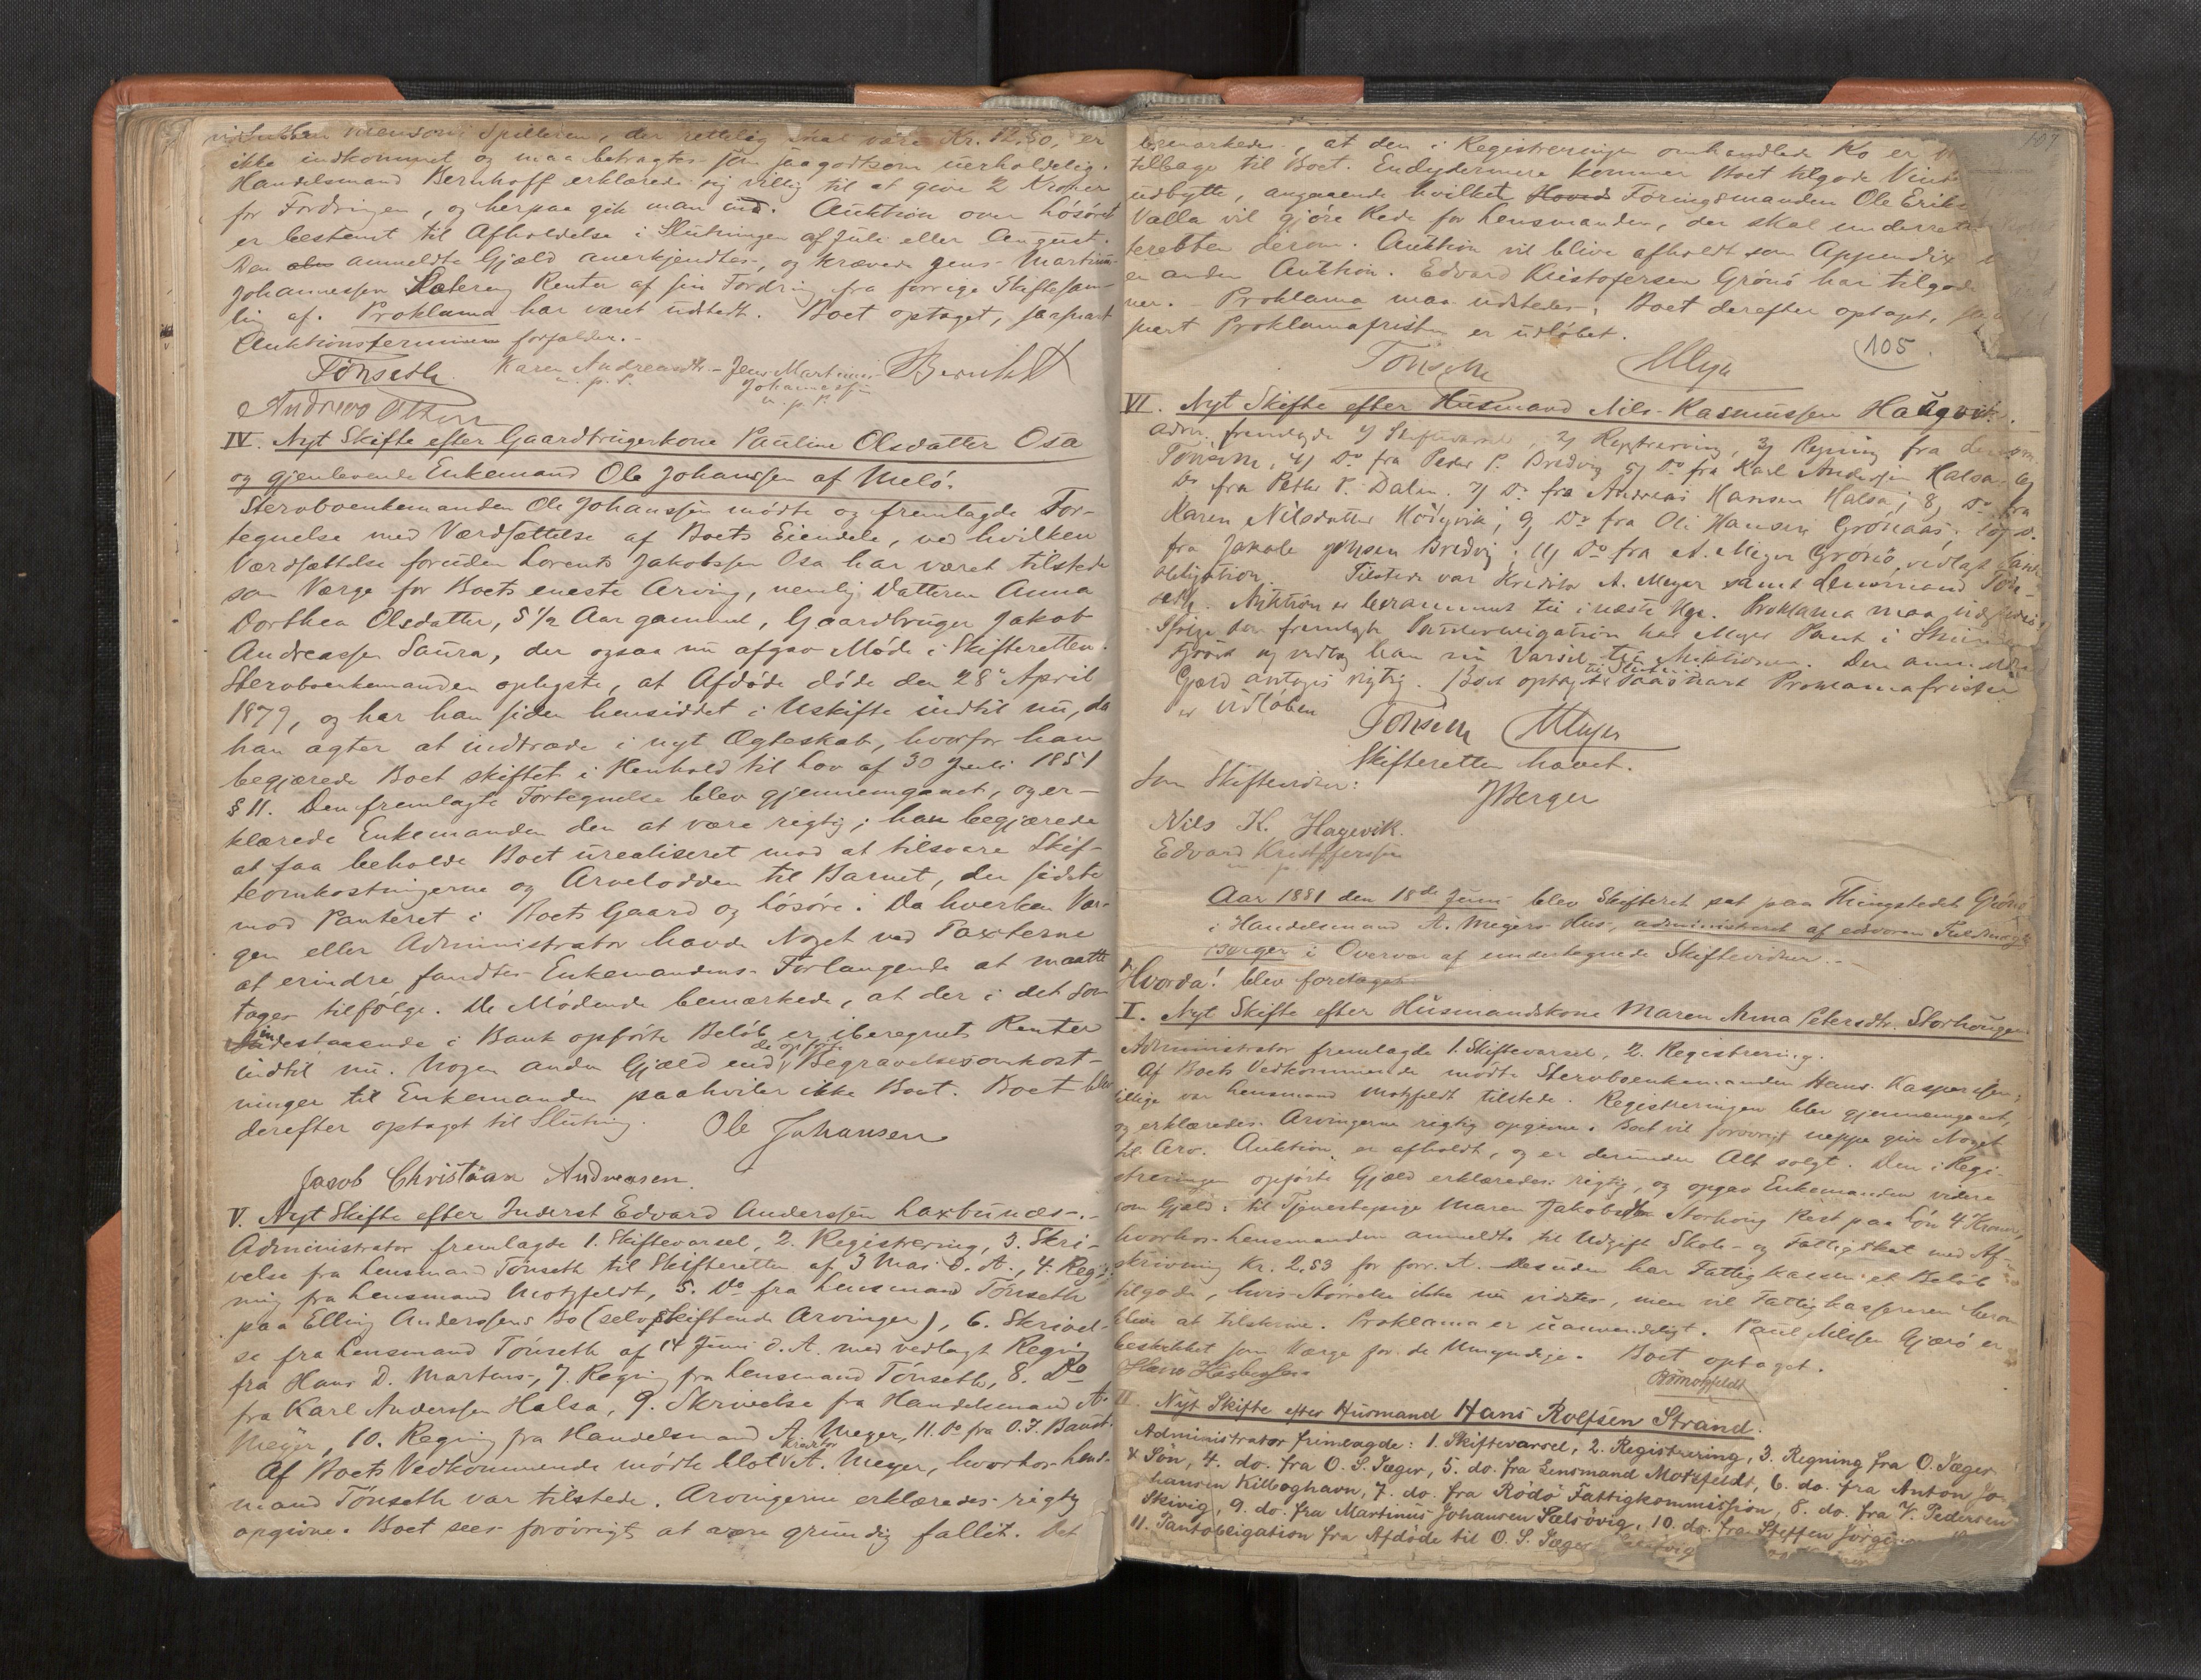 Spilleren, der rettelig skal være Kr. 12,50, er
ikke indkommet og maa betragtes som saagodtsom uerholdelig.
Handelsmand Bernhoff erklærede sig villig til at give 2 Kroner
for Fordringen, og herpaa gik man ind. Auktion over Løsøret
er bestemt til Afholdelse i Slutningen af Juli eller August.
Den anmeldte Gjæld anerkjendtes, og krævede Jens Martinus
Johannessen Renter af sin Fordring fra forrige Skiftesam-
ling af. Proklama har været udstedt. Boet optaget, saasnart
Auktionsterminen forfalder.
Tönseth. Karen Andreasdtr. Jens Martinus Bernhoff
m. p. P. Johannessen
m. p. P.
Andreas Olsen
IV. Nyt Skifte efter Gaardbrugerkone Pauline Olsdatter Osa
og gjenlevende Enkemand Ole Johanssen af Melö.
Stervboenkemanden Ole Johanssen mødte og fremlagde For-
tegnelse med Værdsættelse af Boets Eiendele, ved hvilken
Værdsættelse foruden Lorents Jakobssen Osa har været tilstede
som Værge for Boets eneste Arving, nemlig Datteren Anna
Dorthea Olsdatter, 5 1/2 Aar gammel, Gaardbruger Jakob
Andreassen Saura, der ogsaa nu afgav Møde i Skifteretten.
Stervboenkemanden oplyste, at Afdøde døde den 28de April
1879, og har han siden hensiddet i Uskifte indtil nu, da
han agter at indtræde i nyt Ægteskab, hvorfor han
begjærede Boet skiftet i Henhold til Lov af 30 Juli 1851
§ 11. Den fremlagte Fortegnelse blev gjennemgaaet, og er-
klærede Enkemanden den at være rigtig; han begjærede
at faa beholde Boet urealiseret mod at tilsvare Skif-
teomkostningerne og Arvelodden til Barnet, den sidste
mod Panteret i Boets Gaard og Løsøre. Da hverken Vær-
gen eller Administrator havde Noget ved Taxterne
at erindre, fandtes Enkemandens Forlangende at maatte
tages tilfølge. De Mødende bemærkede, at der i det som
indestaaende i Bank opførte Beløb er iberegnet Renter
indtil nu. Nogen anden Gjæld end de opførte Begravelsesomkost-
ninger til Enkemanden paahviler ikke Boet. Boet blev
derefter optaget til Slutning. Ole Johansen
Jacob Christiaan Andreasen.
V. Nyt Skifte efter Inderst Edvard Anderssen Laxbunæs.
Administrator fremlagde 1. Skiftevarsel, 2. Registrering, 3. Skri-
velse fra Lensmand Tönseth til Skifteretten af 3 Mai d. A., 4. Reg-
ning fra Lensmand Motzfeldt, 5. Do fra Lensmand Tönseth
paa Elling Anderssens Bo (selvskiftende Arvinger), 6. Skrivel-
se fra Lensmand Tönseth af 14 Juni d. A. med vedlagt Regning
fra Hans D. Martens, 7. Regning fra Lensmand Tönseth, 8. Do
fra Karl Anderssen Halsa, 9. Skrivelse fra Handelsmand A.
Meyer, 10. Regning fra Handelsmand A. Meyer, 11. Do fra O. J.
Af Boets Vedkommende mødte blot Kreditor A. Meyer, hvorhos Lens-
mand Tönseth var tilstede. Arvingerne erklæredes rigtig
opgivne. Boet sees forøvrigt at være grundig fallit. Det
107
bemærkedes, at den i Registreringen omhandlede Ko er
tilbage til Boet. Endydermere kommer Boet tilgode
udbytte, angaaende hvilket Føringsmanden Ole
Valla vil gjøre Rede for Lensmanden, der skal underrette
Skifteretten derom. Auktion vil blive afholdt som Appendix
en anden Auktion. Edvard Kristofersen Grönö har tilgode
Proklama maa udstedes. Boet derefter optaget,
snart Proklamafristen er udløbet.
105
Tönseth AMeyer
VI. Nyt Skifte efter Husmand Nils Rasmussen Haugvik.
Adm. fremlagde 1) Skiftevarsel, 2) Registrering, 3) Regning fra Lensm.
Tönseth, 4) Do fra Peder P. Bredvig 5) Do fra Karl Anderssen Halsa, 6)
Do fra Petter P. Dalen. 7) Do fra Andreas Hansen Halsa; 8) Do fra
Karen Nilsdatter 9) Do fra Ole Hansen Grönaas; 10) Do
fra Jakob Jensen Bredvig; 11) Do fra A. Meyer Grönö, vedlagt
obligation. Tilstede var Kreditor A. Meyer samt Lensmand Tön-
seth. Auktion er berammet til i næste Uge. Proklama maa udstedes.
Ifølge den fremlagte Panteobligation har Meyer Pant i
og vedtog han sin Varsel til Auktionen. Den anmeldte
Gjæld antages rigtig. Boet optaget til Slutning saasnart Proklamafristen
er udløben
Tönseth AMeyer
Skifteretten hævet.
Som Skiftevidner: JBerger
Nils K. Hagevik.
Edvard Kristoffersen
m. p. P.
Aar 1881 den 18de Juni blev Skifteret sat paa Thingstedet Grönö
i Handelsmand A. Meyers Hus, administreret af edsvoren Fuldmægtig
Berger i Overvær af undertegnede Skiftevidner.
Hvorda! blev foretaget
I. Nyt Skifte efter Husmandskone Maren Anna Petersdtr. Storhougen
Administrator fremlagde 1. Skiftevarsel, 2. Registrering.
Af Boets Vedkommende mødte Stervboenkemanden Hans Kasperssen;
tillige var Lensmand Motzfeldt tilstede. Registreringen blev gjennemgaaet,
og erklæredes Arvingerne rigtig opgivne. Boet vil forøvrigt neppe give Noget
til Arv. Auktion er afholdt, og er derunder Alt solgt. Den i Regi-
streringen opførte Gjæld erklæredes rigtig, og opgav Enkemanden videre
som Gjæld: til Tjenestepige Maren Jakobsdtr Storhoug Rest paa Løn 4 Kroner,
hvorhos Lensmanden anmeldte til Udgift Skole- og Fattigskat med Af-
skrivning Kr. 2,53 for forr. A. Desuden har Fattigkassen et Beløb
tilgode, hvis Størrelse ikke nu vidstes, men vil Fattigkassereren herom
blive at tilskrive. Proklama er uanvendeligt. Paul Nilssen Gjærö er
beskikket som Værge for de Umyndige. Boet optaget.
Hans Kasperssen Motzfeldt
II. Nyt Skifte efter Husmand Hans Rolfsen Strand.
Administrator fremlagde: 1. Skiftevarsel, 2. Registrering, 3. Regning fra O. Jæger
& Søn, 4. do. fra O. S. Jæger, 5. do. fra Lensmand Motzfeldt, 6. do. fra Anton Jo-
hansen Kilboghavn, 7. do. fra Rödö Fattigkommission, 8. do. fra V. Pedersen
Skivig, 9. do. fra Martinus Johansen Sælsövig, 10. do. fra Steffen
11. Pantobligation fra Afdøde til O. S. Jæger